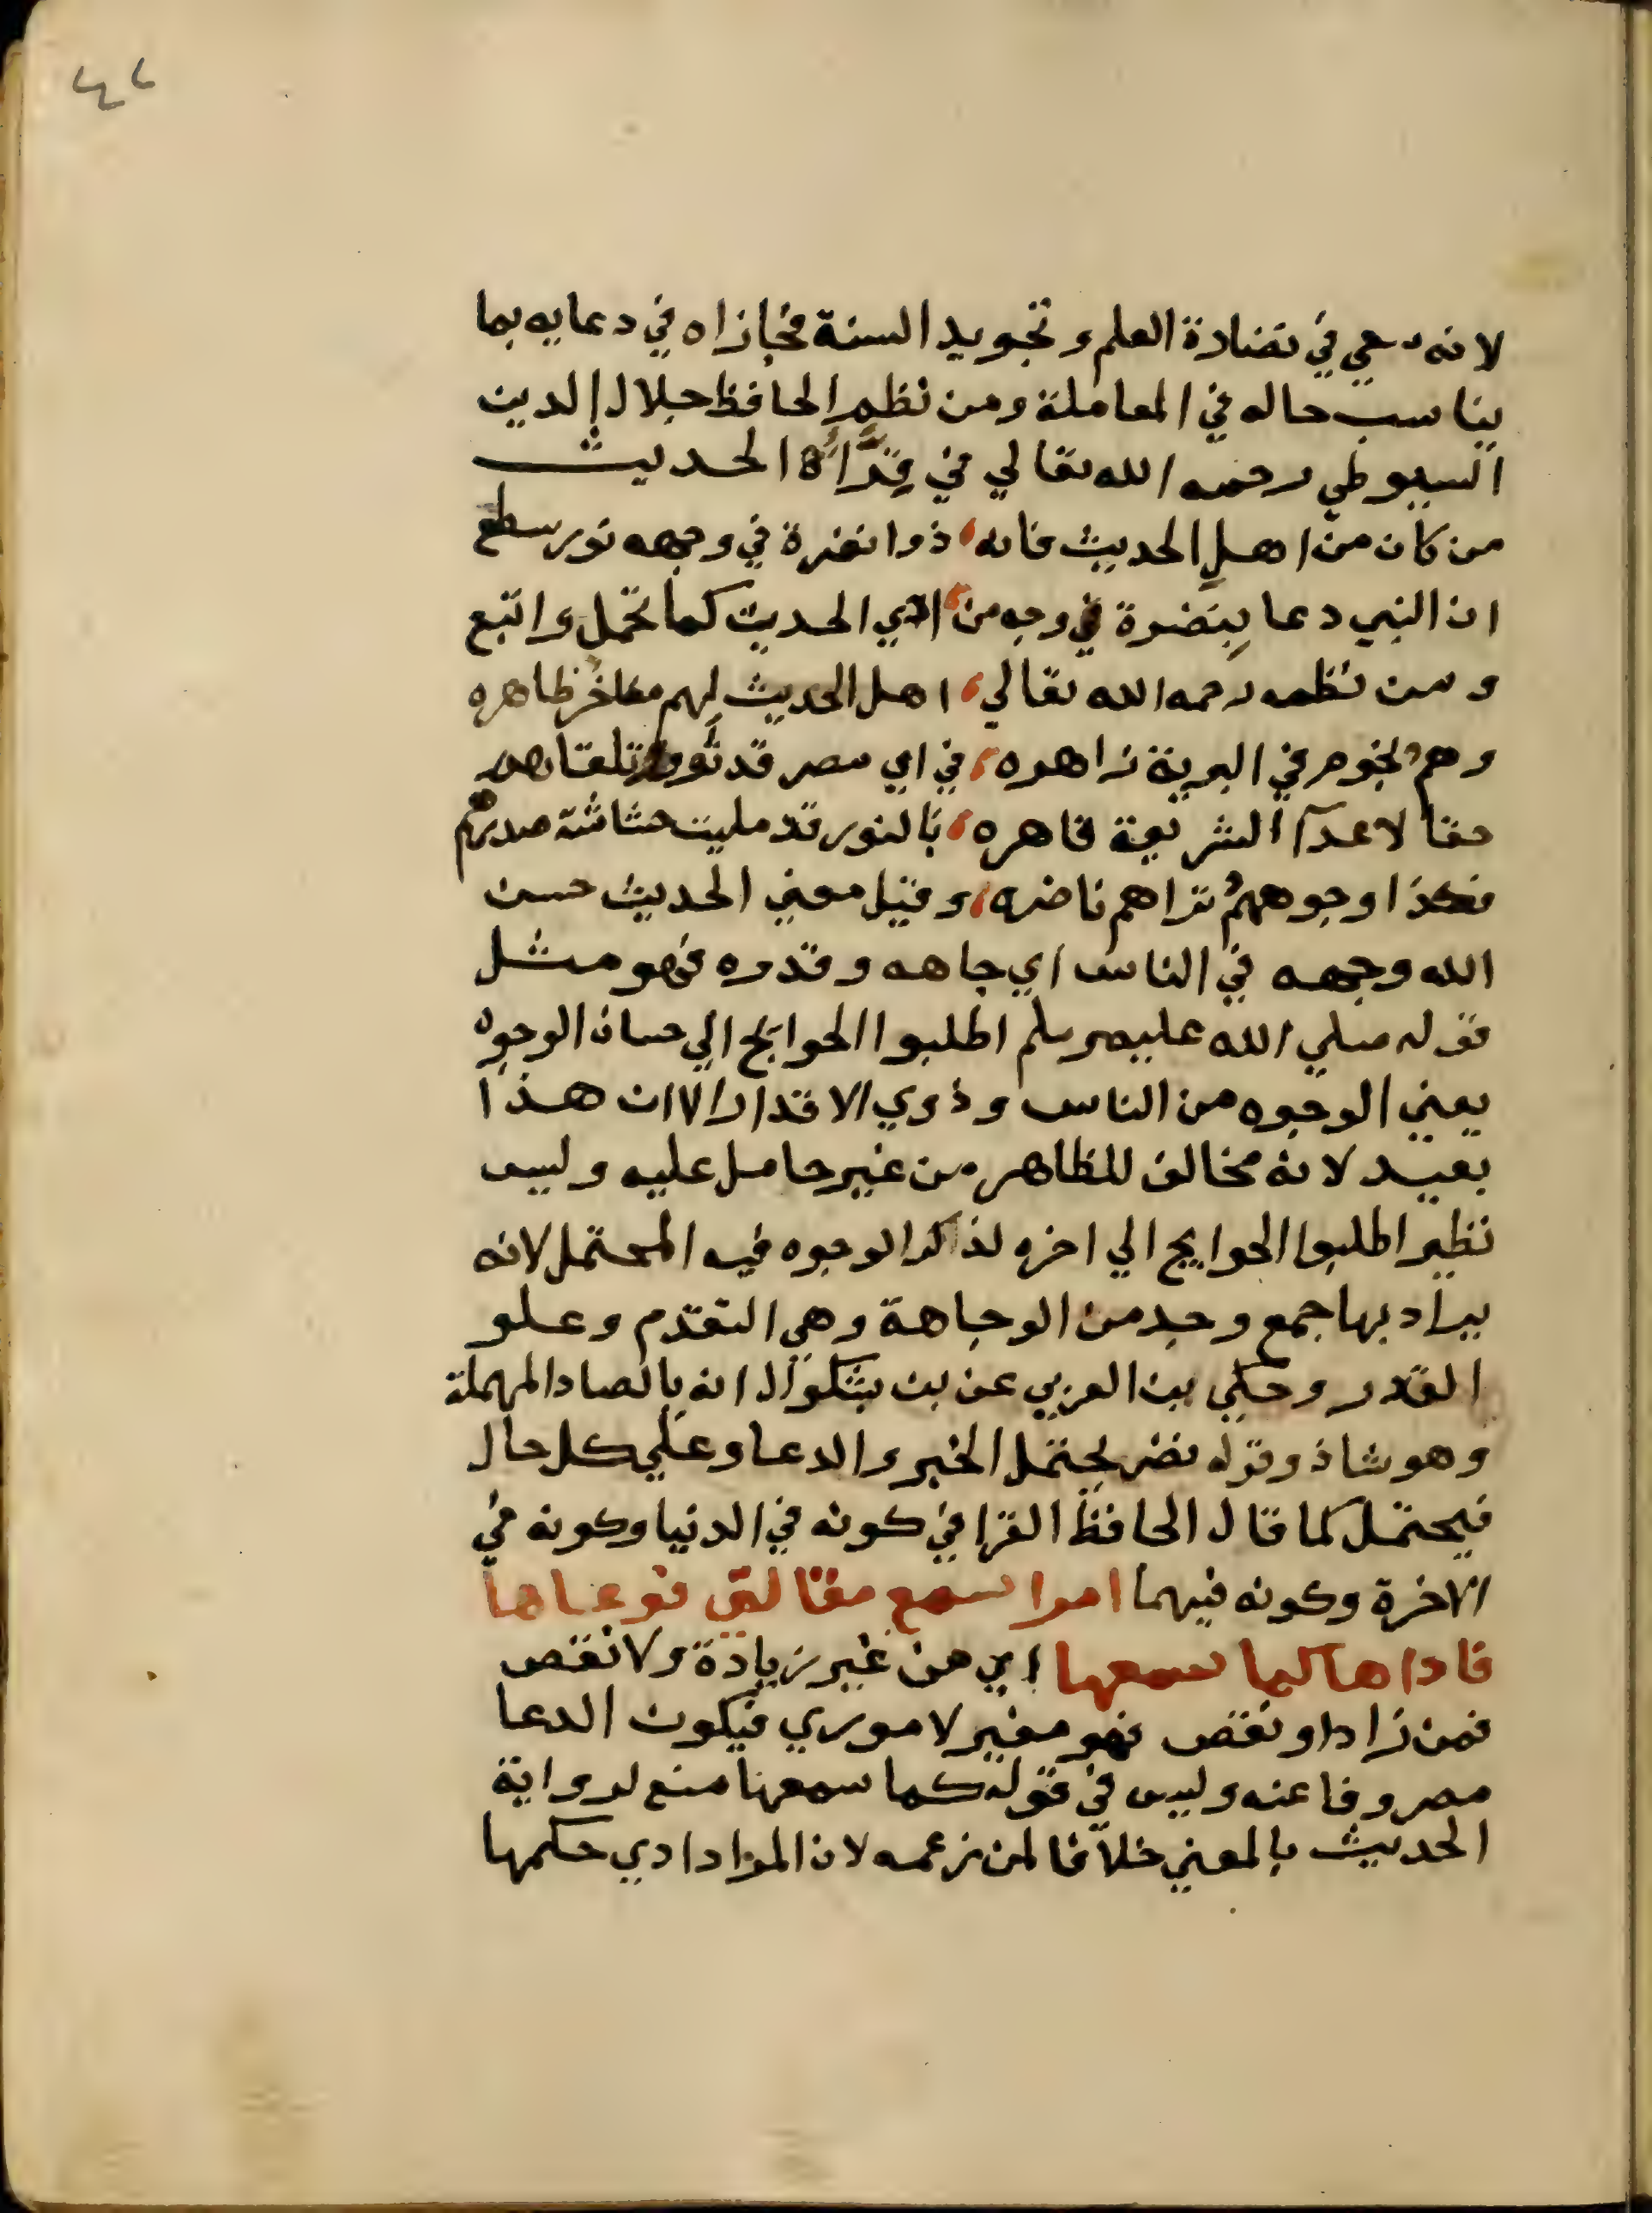 ٤٢
لانه سعي في نضارة العلم وتجويد السنة فجازاه في دعايه بما
يناسب حاله في المعاملة ومن نظم الحافظ جلال الدين
السيوطي رحمه الله تعالي في قراة الحديث
من كان من اهل الحديث فانه، ذوا نضرة في وجهه نور سطع
ان النبي دعا بنضرة وجه من، ادي الحديث كما تحمل واتبع
ومن نظمه رحمه الله تعالي، اهل الحديث لهم مفاخر ظاهره
وهم نجوم في البرية زاهره، في اي مصر قد ثووا تلقاهم
حقا لاعدآ الشريعة قاهره، بالنور قد مليت حشاشة صدرهم
فكذا وجوههم تراهم ناضره، وقيل معني الحديث حسن
الله وجهه في الناس اي جاهه وقدره فهو مثل
قوله صلي الله عليه وسلم اطلبوا الحوايج الي حسان الوجوه
يعني الوجوه من الناس وذوي الاقدار الا ان هذا
بعيد لانه مخالف للظاهر من غير حامل عليه وليس
نظير اطلبوا الحوايج الي اخره لذكر الوجوه فيه المحتمل لانه
يراد بها جمع وجه من الوجاهة وهي التقدم وعلو
القدر وحكي بن العربي عن بن بشكوال انه بالصاد المهملة
وهو شاذ وقوله نضر يحتمل الخبر والدعا وعلي كل حال
فيحتمل كما قال الحافظ القرافي كونه في الدنيا وكونه في
الاخرة وكونه فيهما امرا سمع مقالتي فوعاها
فاداها كما سمعها اي من غير زيادة ولا نقص
فمن زاد او نقص فهو مغير لا موري فيكون الدعا
مصروفا عنه وليس في قوله كما سمعها منع لرواية
الحديث بالمعني خلافا لمن زعمه لان المراد ادي حكمها